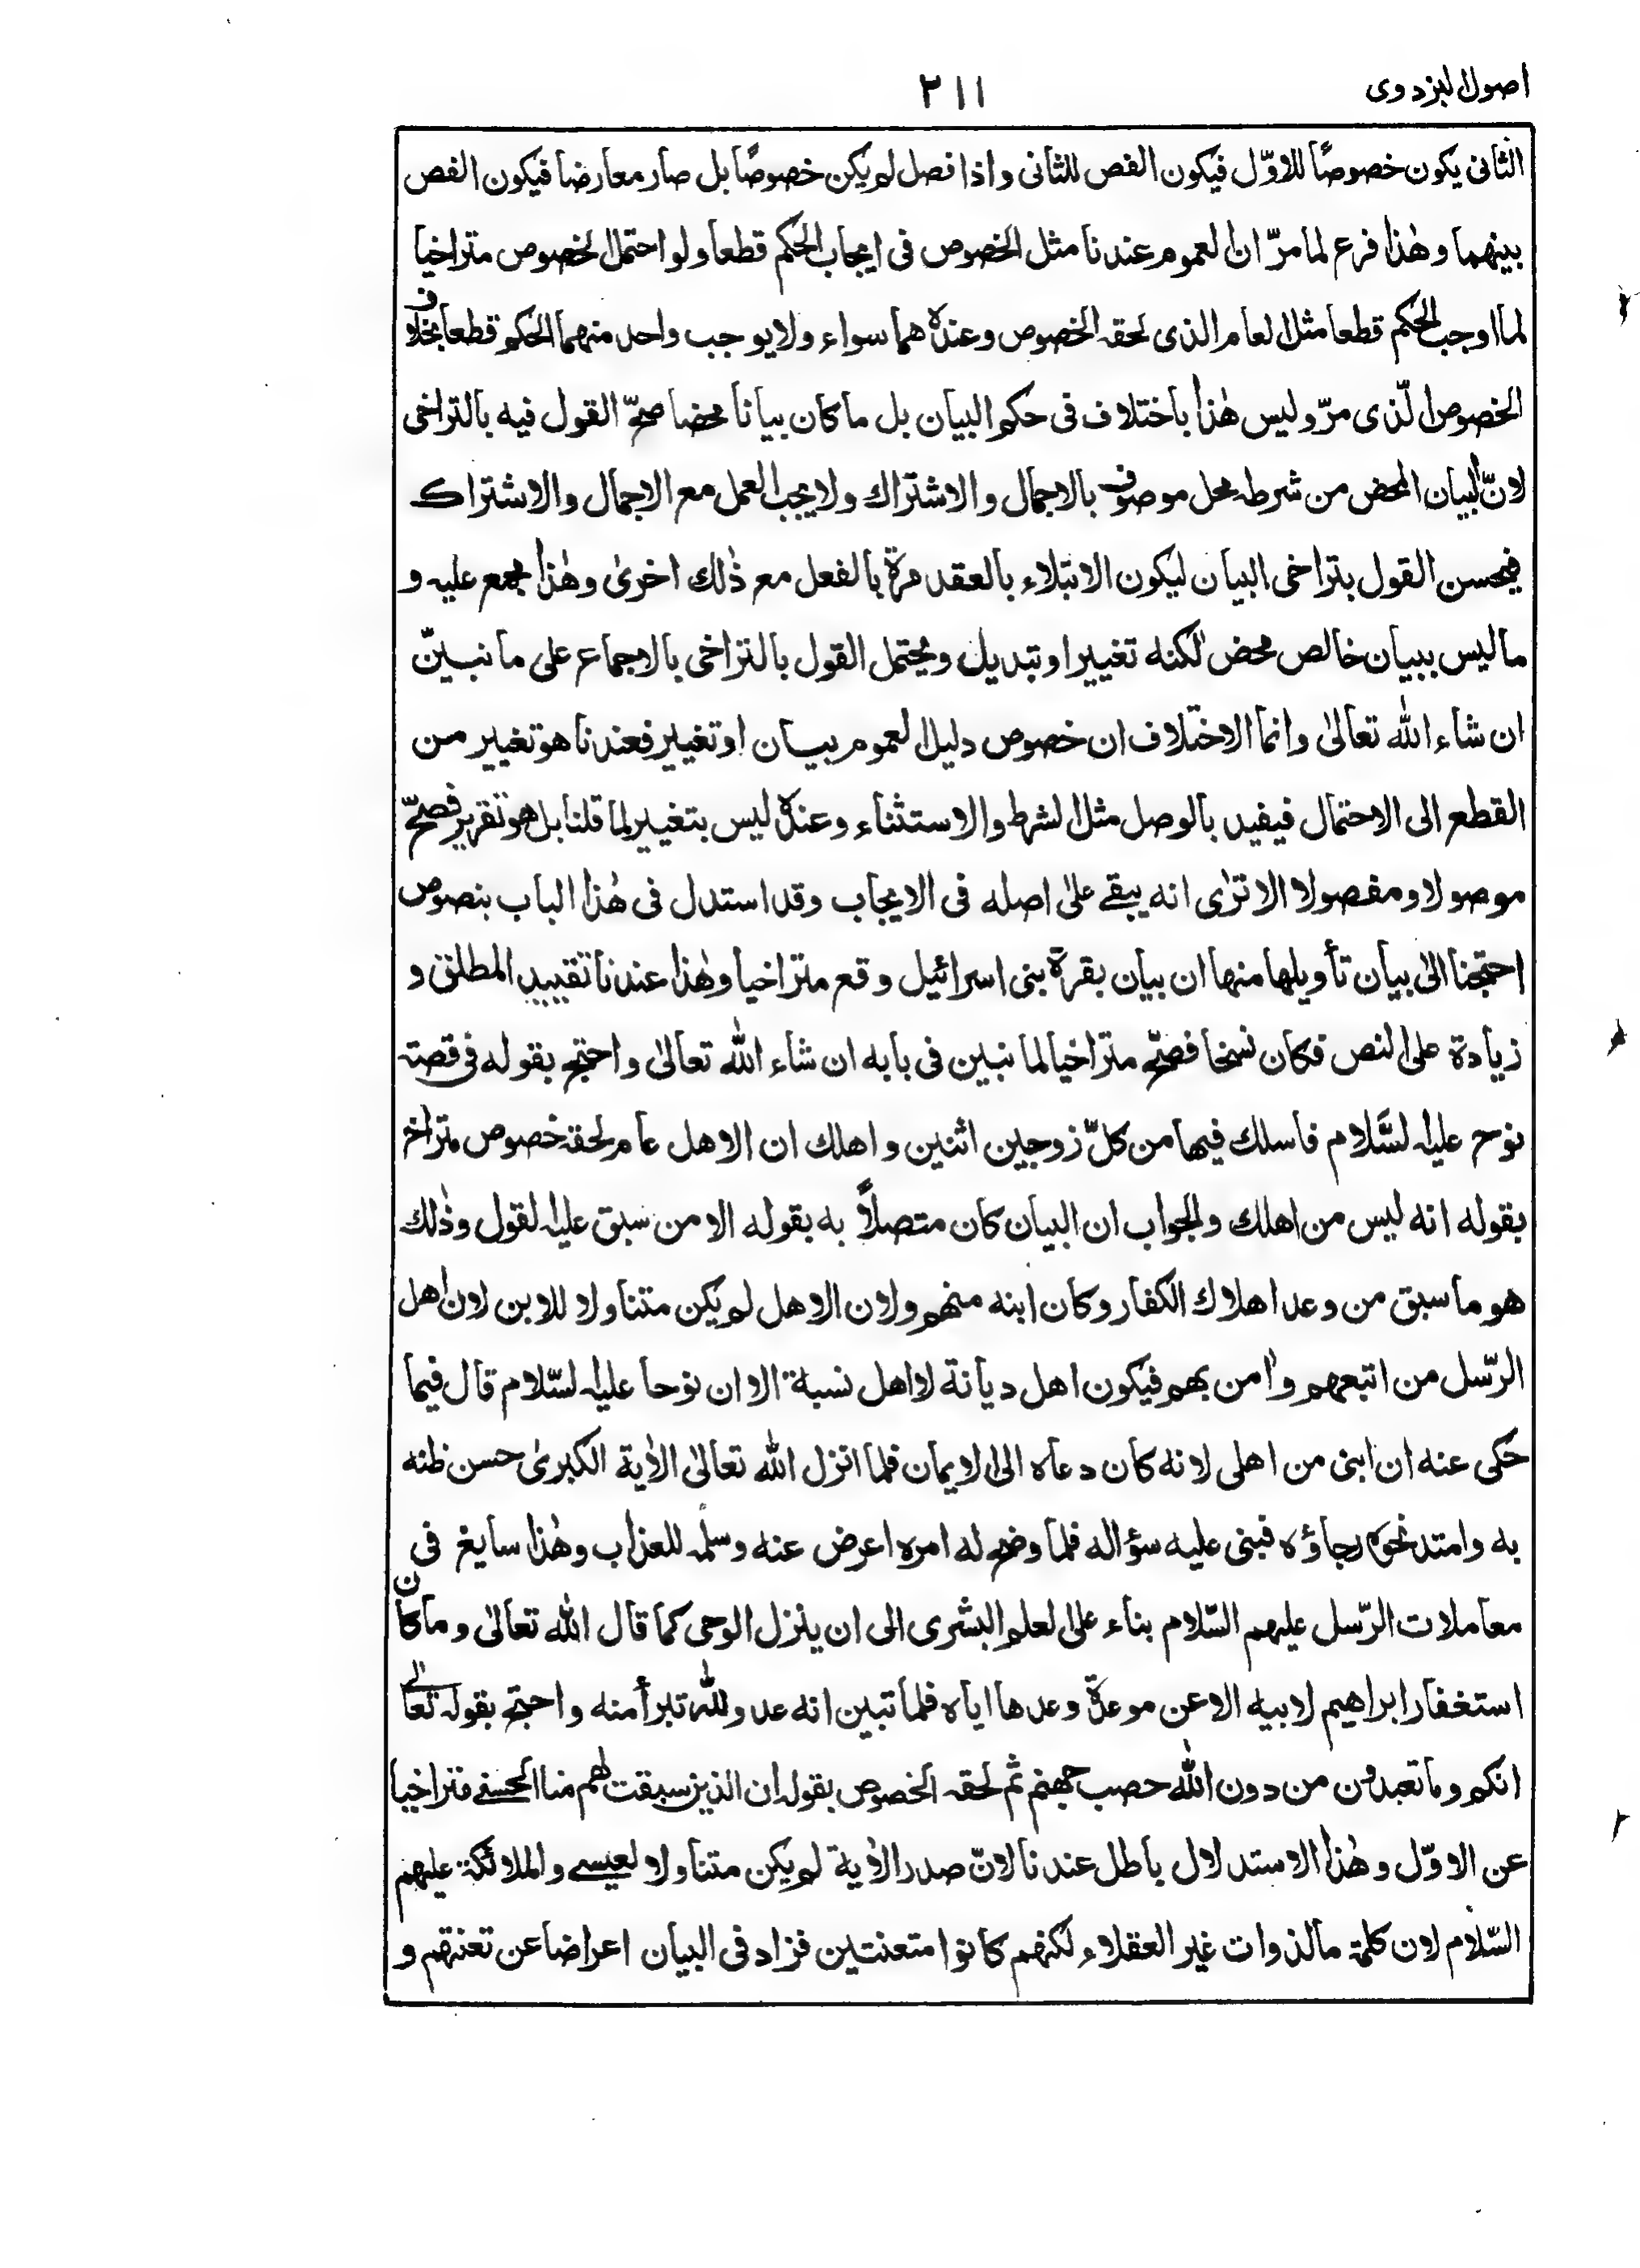 اصول البزدوى
٢١١
الثانى يكون خصوصًا للاوّل فيكون الفص للثانى واذا فصل لم يكن خصوصًا بل صار معارضا فيكون الفص
بينهما وهٰذا فرع لما مرّ ان العموم عندنا مثل الخصوص فى ايجاب الحكم قطعا ولو احتمل الخصوص متراخيا
لما اوجب الحكم قطعا مثل العام الذى لحقه الخصوص وعنده هما سواء ولا يوجب واحد منهما الحكم قطعا بخلاف
الخصوص الّذى مرّ وليس هٰذا باختلاف فى حكم البيان بل ما كان بيانا محضا صحّ القول فيه بالتراخى
لانّ البيان المحض من شرطه محل موصوف بالاجمال والاشتراك ولا يجب العمل مع الاجمال والاشتراك
فيحسن القول بتراخى البيان ليكون الابتلاء بالعقد مرة بالفعل مع ذٰلك اخرىٰ وهٰذا مجمع عليه و
ما ليس ببيان خالص محض لٰكنه تغيير او تبديل ويحتمل القول بالتراخى بالاجماع على ما نبينّ
ان شاء الله تعالىٰ وانما الاختلاف ان خصوص دليل العموم بيان او تغيير فعندنا هو تغيير من
القطع الى الاحتمال فيفيد بالوصل مثل الشرط والاستثناء وعنده ليس بتغيير لما قلنا بل هو تقرير فصحّ
موصولا ومفصولا الا ترٰى انه يبقے علىٰ اصله فى الايجاب وقد استدل فى هٰذا الباب بنصوص
احتجنا الىٰ بيان تأويلها منها ان بيان بقرة بنى اسرائيل وقع متراخيا وهٰذا عندنا تقييد المطلق و
زيادة على النص فكان نسخا فصحّ متراخيا لما نبين فى بابه ان شاء الله تعالىٰ واحتج بقوله فى قصة
نوح عليه السَّلام فاسلك فيها من كلّ زوجين اثنين واهلك ان الاهل عام لحقه خصوص متراخ
بقوله انه ليس من اهلك والجواب ان البيان كان متصلاً به بقوله الا من سبق عليه القول وذٰلك
هو ما سبق من وعد اهلاك الكفار وكان ابنه منهم ولان الاهل لم يكن متناولا للابن لان اهل
الرّسل من اتبعهم واٰمن بهم فيكون اهل ديانة لا اهل نسبة الا ان نوحا عليه السّلام قال فيما
حكى عنه ان ابنى من اهلى لانه كان دعاه الى الايمان فلما انزل الله تعالىٰ الاٰية الكبرىٰ حسن ظنه
به وامتد نحوه رجاؤه فبنى عليه سؤاله فلما وضح له امره اعرض عنه وسلمه للعذاب وهٰذا سايغ فى
معاملات الرّسل عليهم السّلام بناء على العلم البشرى الى ان ينزل الوحى كما قال الله تعالىٰ وما كان
استغفار ابراهيم لابيه الا عن موعدة وعدها اياه فلما تبين انه عدو لله تبرأ منه واحتج بقوله تعالىٰ
انكم وما تعبدون من دون الله حصب جهنم ثم لحقه الخصوص بقوله ان الذين سبقت لهم منا الحسنے متراخيا
عن الاوّل وهٰذا الاستدلال باطل عندنا لانّ صدر الاٰية لم يكن متناولا لعيسے والملائكة عليهم
السّلام لان كلمة ما لذوات غير العقلاء لكنهم كانوا متعنتين فزاد فى البيان اعراضا عن تعنتهم و